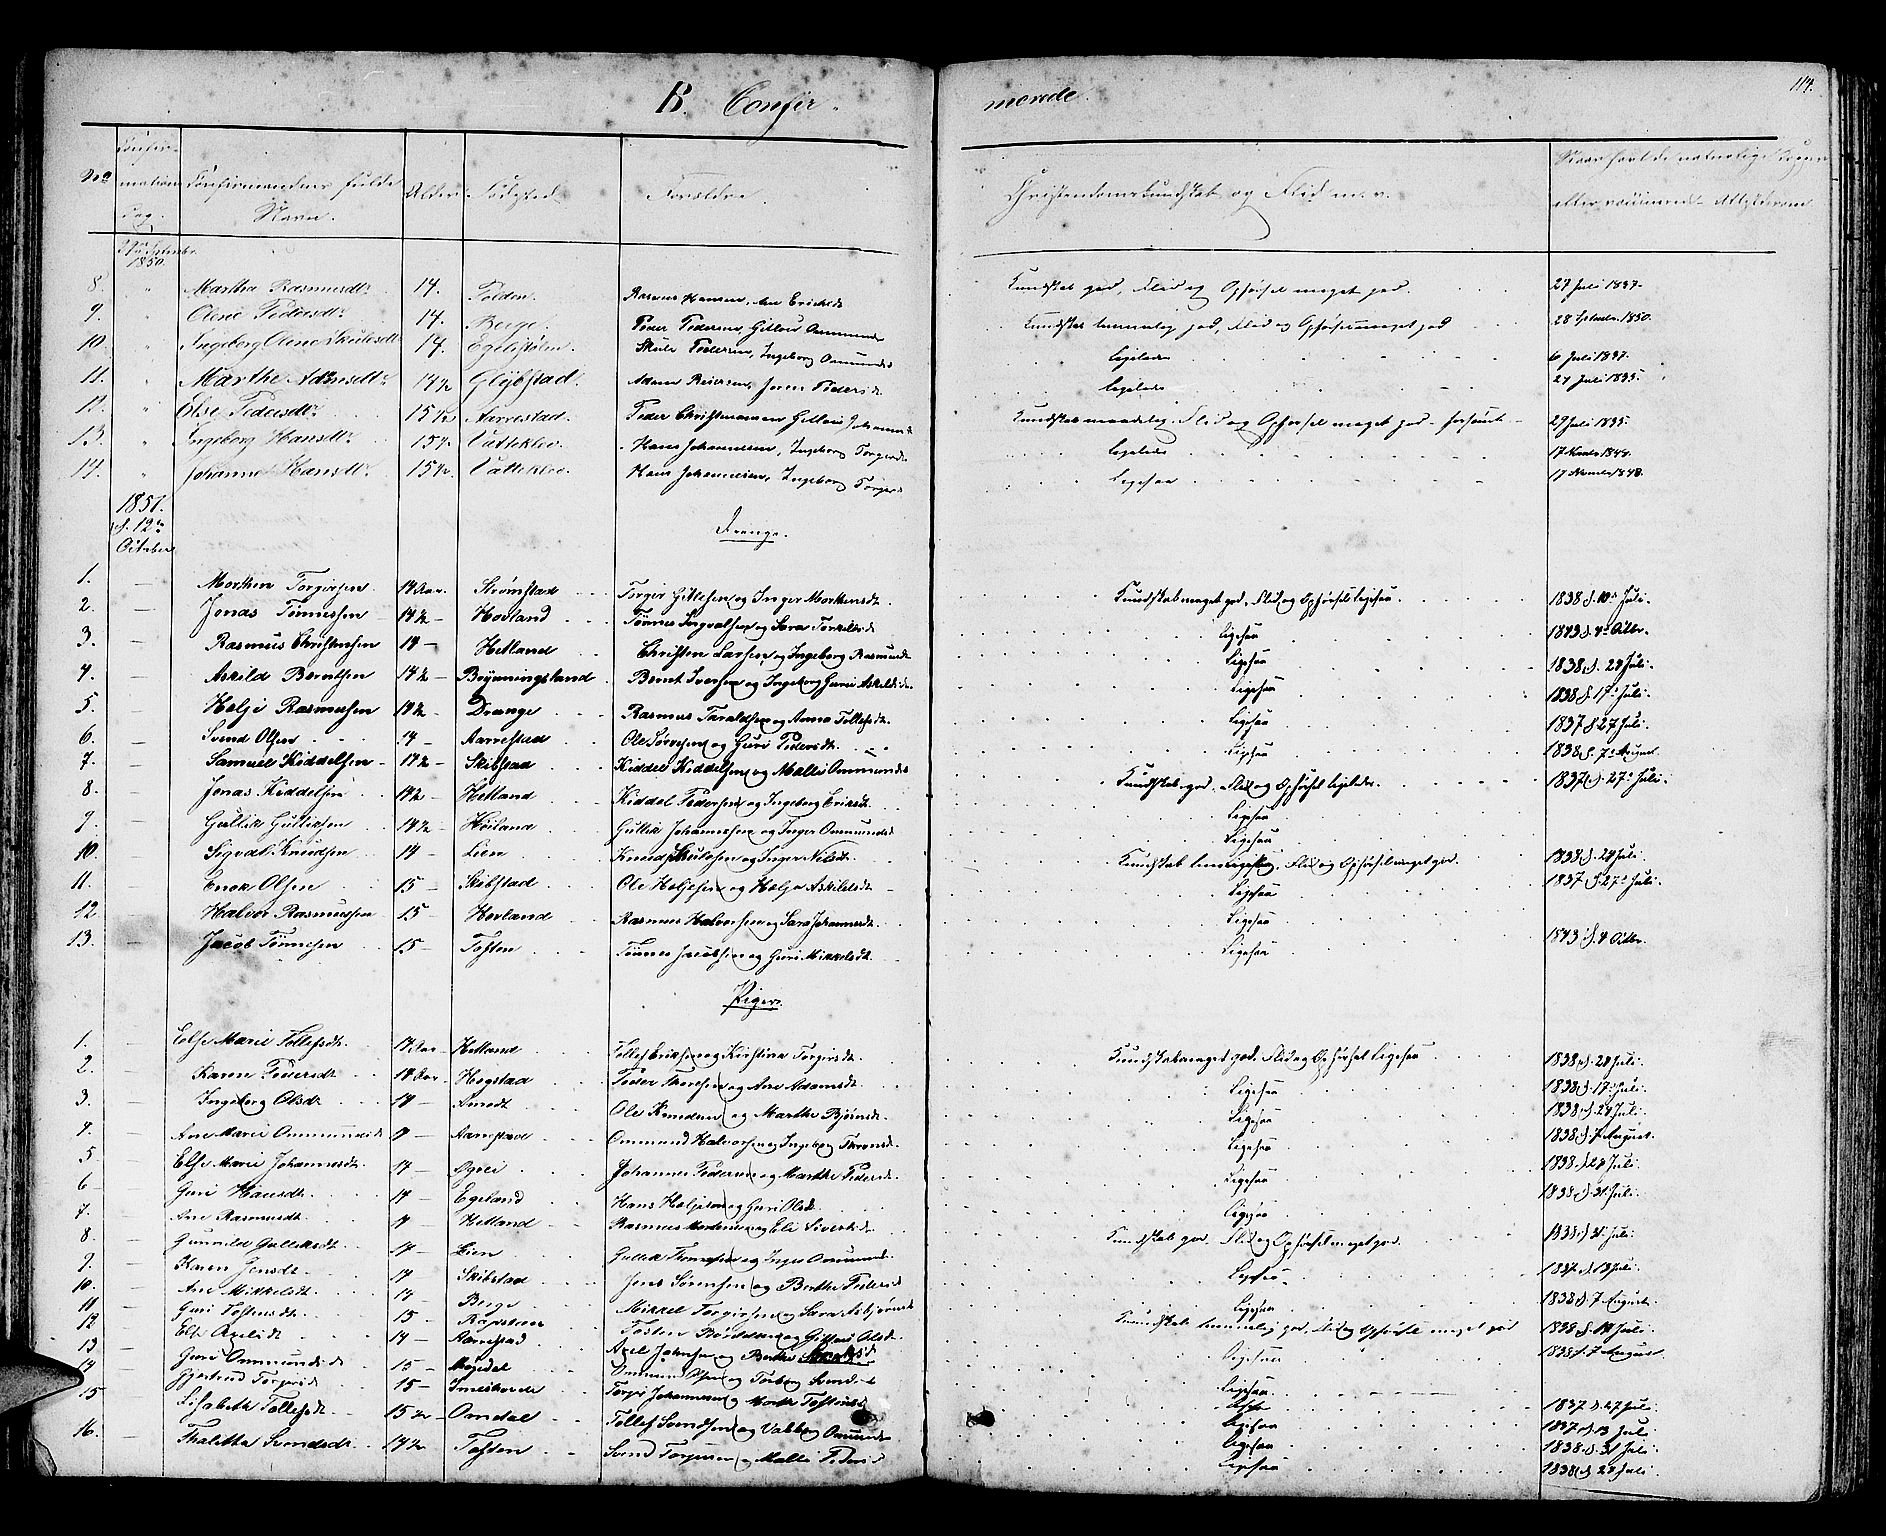 114.
B. Confirmerede
No Confirmations Dag. Confirmandens fulde Navn. Alder Fødested Forældre. Christendomskundskab og Flid m. v. Naar havt de naturlige Kopper eller vaccineret Attestens
September 1850.
8. " Martha Rasmusdtr 14. Tolden. Rasmus Hansen, Ane Ericksdt Kundskab god, Flid og Opførsel meget god. 27 Juli 1837.
9. " Olene Pedersdtr 14. Berge. Peder Pedersen, Gitlaus Ommunds Kundskab temmelig god, Flid og Opførsel meget god 28 Septembr. 1850.
10. " Ingeborg Olene Skulesdt 14. Egelistølen. Skule Pedersen, Ingeborg Osmunds ligeledes 6 Juli 1837.
11. " Marthe Adamsdtr 14½ Glybstad. Adam Reiersen, Joren Peders dt ligeledes 27 Juli 1835.
12. " Else Pedersdtr 15½ Aarrestad. Peder Christensen Gitlaus Johannesd Kundskab maadelig. Flid og Opførsel meget god 29 Juli 1835.
13. " Ingeborg Hansdtr 15½ Vatteklev. Hans Johannesen, Ingeborg Torgersdt ligeledes 17 Novbr 1848.
14. " Johanna Hansdtr 15½ Vatteklev. Hans Johannesen, Ingeborg Torgers ligesaa 17 November 1848.
1851. d. 12te October
Drenge.
1. — Morthen Torgersen 14 Aar. Strømstad Torger Gitlesen og Inger Mortensdt. Kundskab meget god, Flid og Opførsel ligesaa. 1838 d. 10de Juli.
2. — Jonas Tønnessen 14½ — Hovland Tønnes Ingvalsen og Sara Torkelsdt Ligesaa 1843 d. 4de Octbr.
3. — Rasmus Christensen 14 — Hetland Christen Larsen og Ingeborg Rasmusdt Ligesaa 1838 d. 28 Juli.
4. — Askild Berntsen 14½ — Brynningsland Bernt Iversen og Ingeborg Guri Askildsdtr. Ligesaa 1838 d. 17de Juli.
5. — Helje Rasmussen 14½ Drange Rasmus Taraldsen og Anna Tollefsdt. Ligesaa 1837 d 27 Juli.
6. — Svend Olsen 14 — Aarrestad Ole Sørensen og Guri Pedersdt. Ligesaa 1838 d. 7de August.
7. — Samuel Kiddelsen 14½ — Skibstad Kiddel Kiddelsen og Malli Ommundsd Kundskab god, Flid og Opførsel ligeledes. 1837 d. 27de Juli.
8. Jonas Kiddelsen 14½ — Hetland Kiddel Pedersen og Ingeborg Eriksdt. Ligesaa
9. — Gullik Gulliksen 14½ — Høiland Gullik Johannessen og Inger Ommundsdt Ligesaa
10. — Sigvald Knudsen 14 — Lien Knud Skulesen og Inger Nilsdt. Kundskab temmelig god, Flid og Opførsel meget god. 1838 d. 28 Juli.
11. — Enok Olsen 15 — Skibstad Ole Heljesen og Helje Askildsdt Ligesaa 1837 d. 27de Juli.
12. — Halvor Rasmussen 15 — Hovland Rasmus Halvorsen og Sara Johannesdt. Ligesaa
13. Jacob Tønnesen 15 — Tosten Tønnes Jacobsen og Guri Mikkelsdt. Ligesaa 1843 d. 4 Octbr.
Piger.
1. — Else Marie Tollefsdt. 14 Aar — Hetland Tollef Eriksen og Kirstina Torgersdt. Kundskab meget god, Flid og Opførsel Ligesaa 1838 d. 28 Juli.
2. — Karen Pedersdt 14 Aar. Hegstad Peder Thoresen og Ane Adamsdt. Ligesaa 1838 d. 17de Juli.
3. — Ingeborg Olsdt 14 — Ole Knudsen og Marthe Bjørnsdt. Ligesaa 1838 d. 28 Juli.
4. — Ane Marie Ommundsdt 14 — Aarrestad Ommund Halvorsen og Ingeborg Ligesaa 1838 d. 7 August.
5. — Else Marie Johannesdt. 14 — Ogrei Johannes Pedersen og Marthe Pedersdt. Ligesaa 1838 d. 28 Juli.
6 — Guri Hansdt. 14 — Egeland Hans Heljesen og Guri Olsdt. Ligesaa 1838 d. 31 Juli.
7. — Ane Rasmusdt. 14 — Hetland Rasmus Mortensen og Eli Sivertsdt Kundskab god, Flid og Opførsel meget god. 1838 d 31 Juli.
8 — Gunnild Gulliksdt. 14 — Lien Gullik Thomesen og Inger Ommunds. Ligesaa 1837 d. 13 Juli.
9. — Karen Jensdt. 14 Skibstad Jens Sørensen og Berthe Pedersdt Ligesaa 1838 d. 7 August.
10. — Ane Mikkelsdt. 14 — Berge Mikkel Torgersen og Sara Asbjørnsdt Kundskab temmelig god, Flid og Opførsel meget god 1838 d. 10 Juli.
11 — Guri Tostensdt. 15 — Røysten Tosten og Gitlaus Olsdt. Ligesaa 1838 d. 7 August.
12 — Else Axelsdt 14 — Aarrestad Axel Johnsen og Berthe Ligesaa
13 — Guri Ommundsdt 15 — Moidal Ommund Olsen og Torborg Svendsdt Ligesaa 1837 d. 27 Juli.
14 — Gjertrud Torgersdt 15 — Torger Johannesen og Marthe Tostensdt Ligesaa 1837 d 13 Juli.
15 — Elisabeth Tollefsdt 15½ — Omdal Tollef Svendsen og Valborg Ommunds Ligesaa 1838 d. 31 Juli.
16. — Thalitta Svendsdt. 14½ Tosten Svend Torgersen og Malli Peders Ligesaa 1838 d 28 Juli.